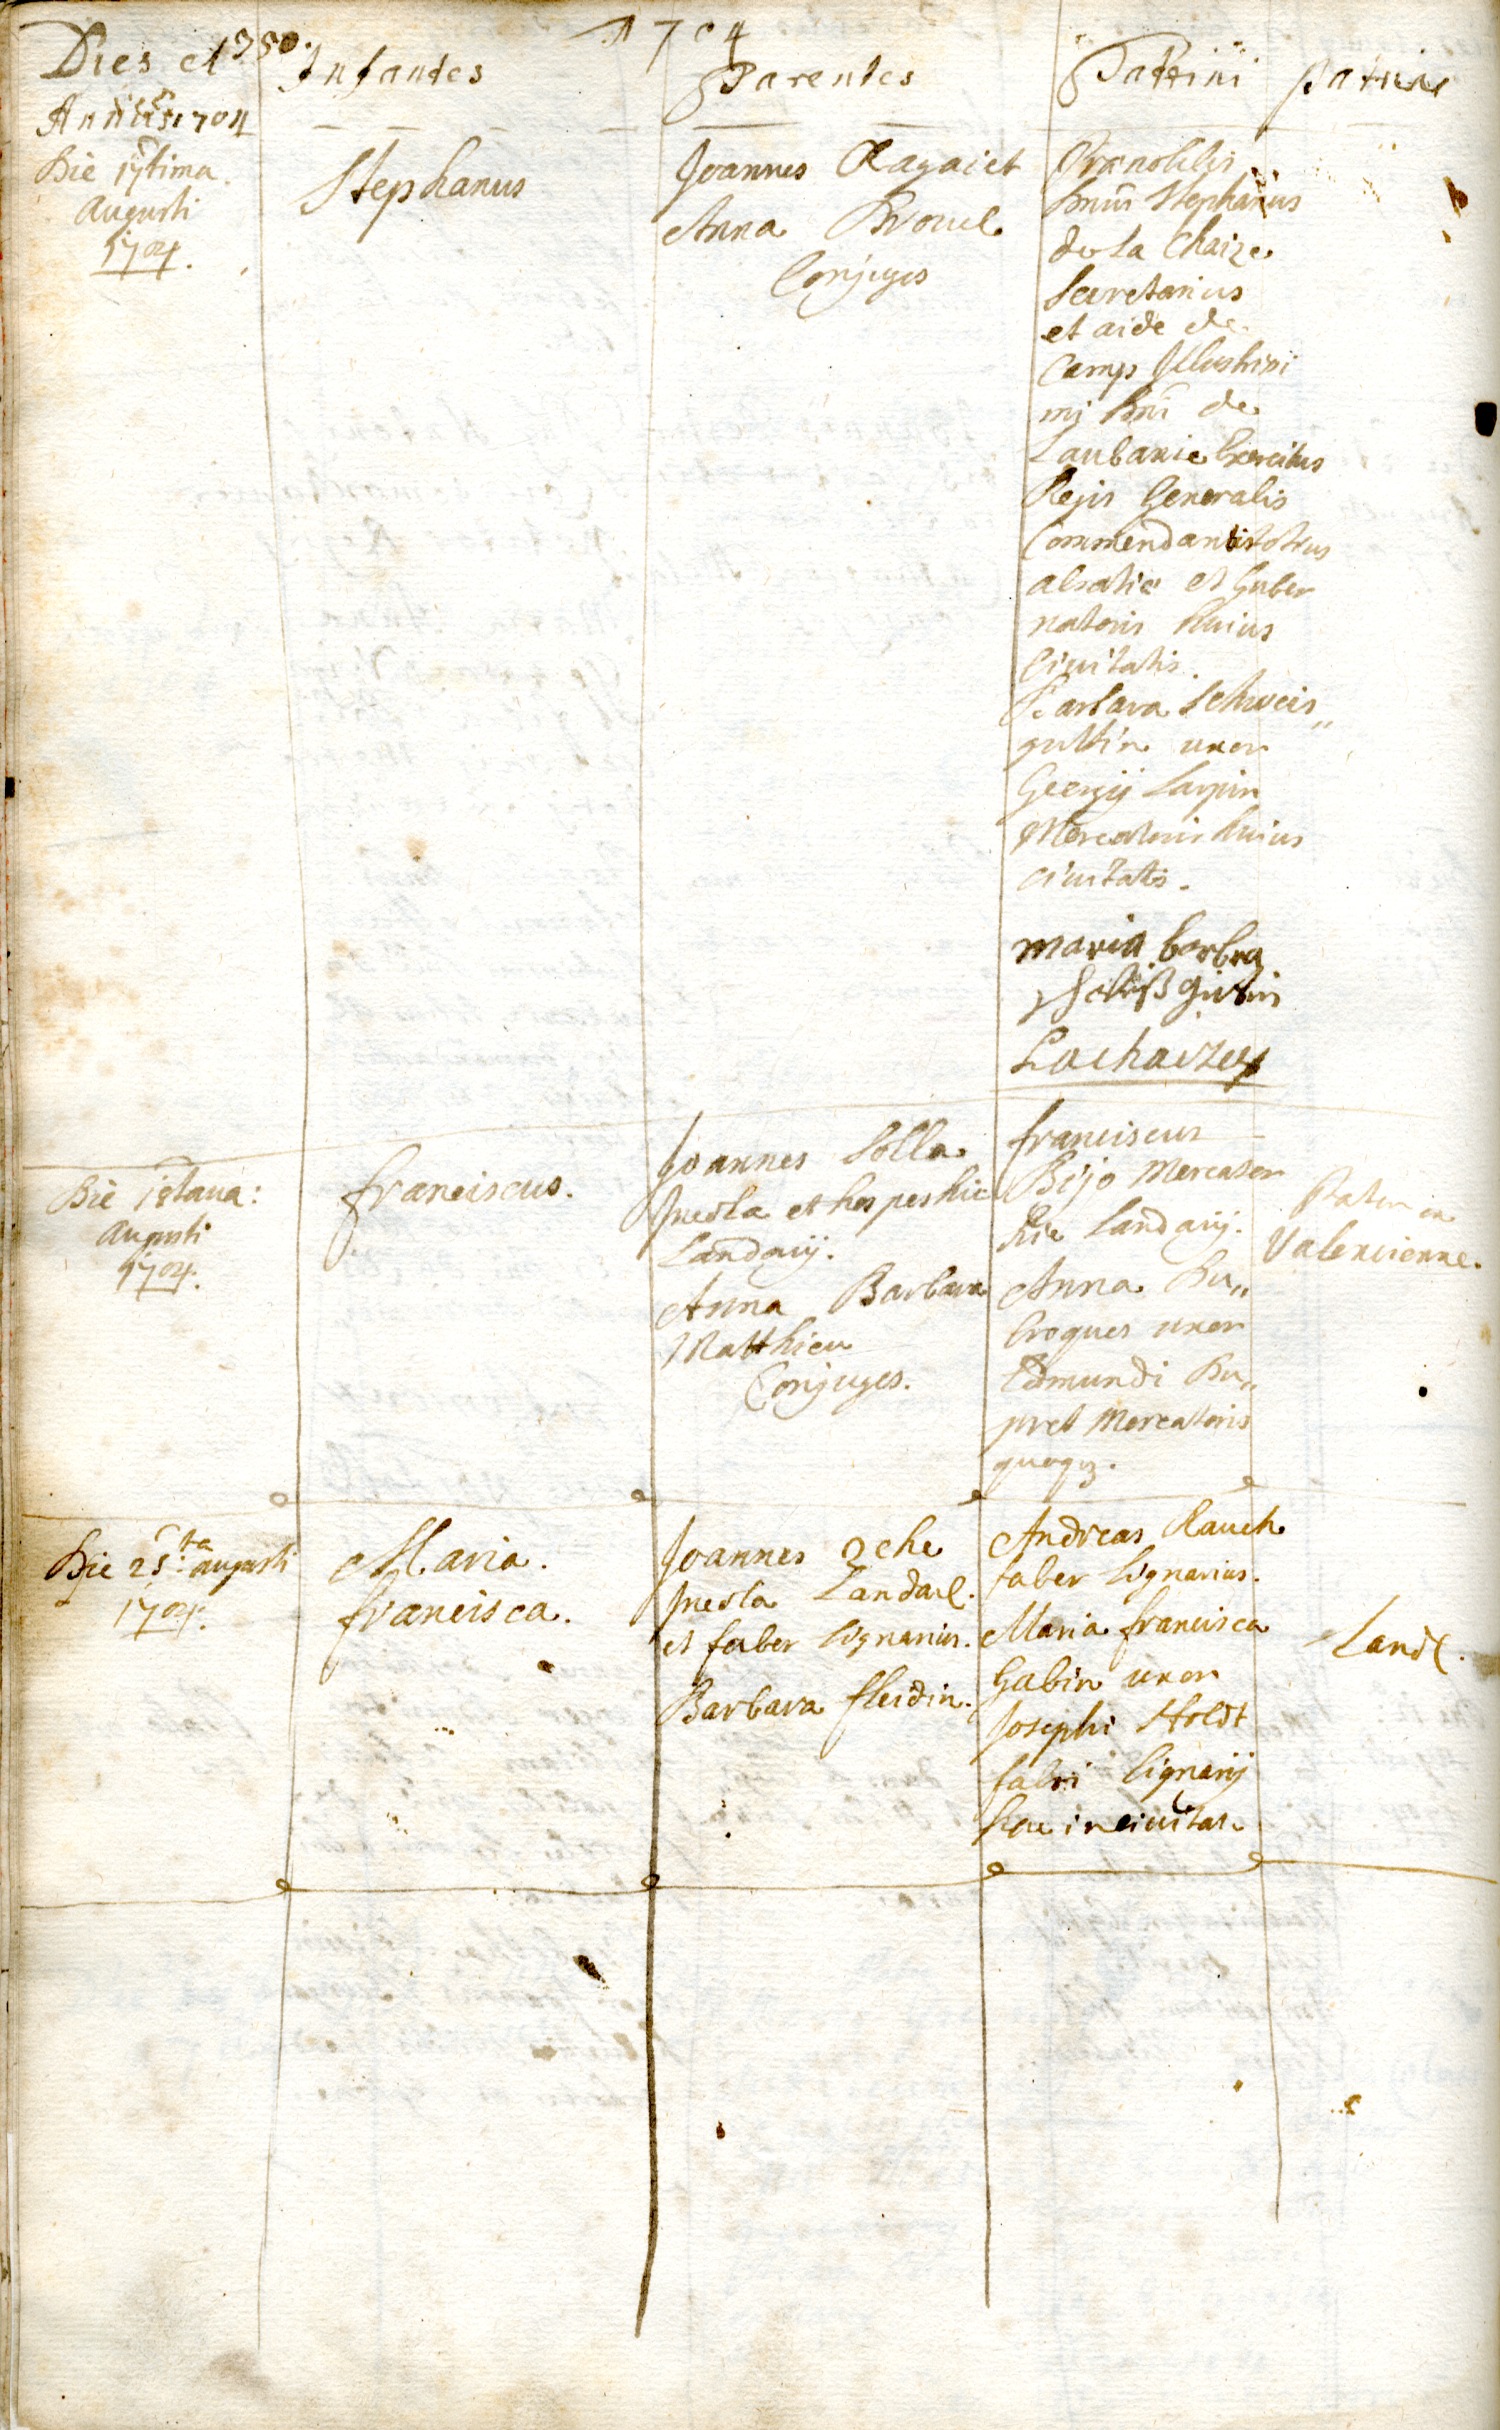 350.
1704
Dies et Infantes Parentes Pattrini Patria
Annus 1704
Die 17tima
Augusti
1704.
Stephanus
Joannes Ragaiet
Anna Brouel
Conjuges
Prænobilis
Dnus Stephanus
de la Chaize
Secretarius
et aide de
Camp Illustrissi
mj Dni de
Laubanie Exercitus
Regis Generalis
Commendantis totius
alsatie et Guber
natoris huius
Ciuitatis.
Barbara Schweis„
guttin uxor
Georgij Larpin
Mercatoris huius
ciuitatis.
maria barbra
Lachaize
Die 18taua:
Augusti
1704.
franciscus.
Joannes Solla
Incola et hospes hic
Landavij.
Anna Barbara
Matthieu
Conjuges.
franciscus
Bijo Mercator
hic Landavij.
Anna Du„
broques uxor
Edmundi Du„
pret Mercatoris
quoqz.
Pater ex
Valencienne.
Die 25ta augusti
1704.
Maria
francisca.
Joannes Oche
Incola Landau.
et faber lignarius.
Barbara fleidin.
Andreas Rauch
faber lignarius.
Maria francisca
Gabin uxor
Josephi Holdt
fabri lignarij
hac in ciuitate.
Land